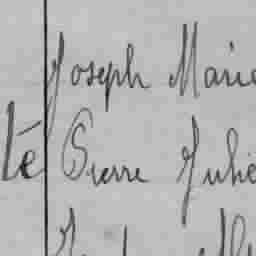 Joseph Marie
té Pierre Julie